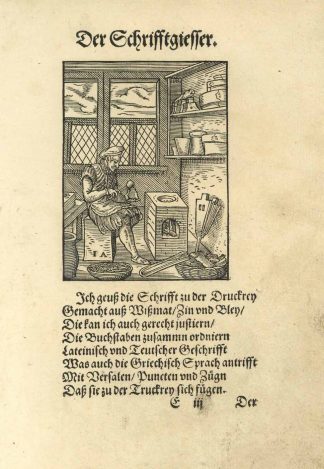 Der Schrifftgiesser.
IA
Ich geuß die Schrifft zu der Druckrey
Gemacht auß Wißmat/Zin vnd Bley/
Die kan ich auch gerecht justiern/
Die Buchstaben zusammn ordniern
Lateinisch vnd Teutscher Geschrifft
Was auch die Griechisch Sprach antrifft
Mit Versalen/Puncten vnd Zügn
Daß sie zu der Truckrey sich fügen.
E iij Der